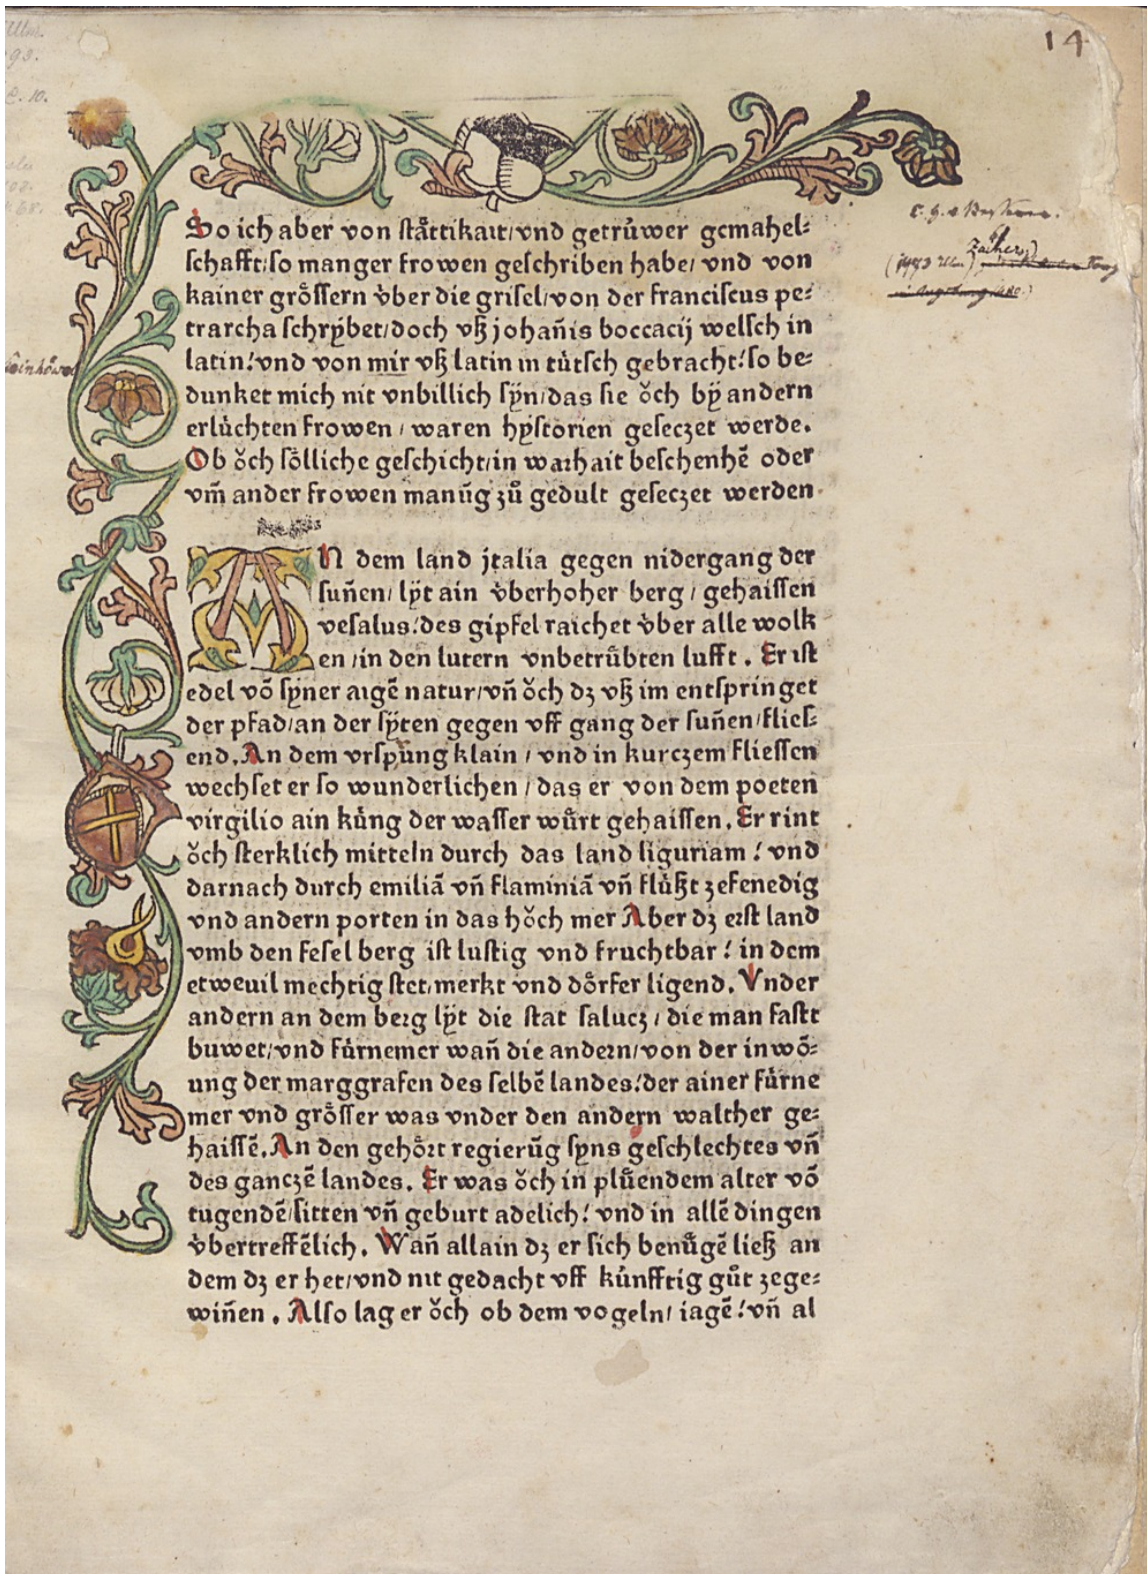 14
So ich aber von ståttikait/vnd getrúwer gemahel⸗
schafft/so manger frowen geschriben habe/ vnd von
kainer grôssern v̇ber die grisel/von der franciscus pe⸗
trarcha schrÿbet/doch vß johañis boccacij welsch in
latin/vnd von mir vß latin in tútsch gebracht/so be⸗
dunket mich nit vnbillich sÿn/das sie ǒch bÿ andern
erlúchten frowen / waren hÿstorien geseczet werde.
Ob ǒch sôlliche geschicht/in warhait beschenhē oder
vm̄ ander frowen manūg zů gedult geseczet werden.
AN dem land jtalia gegen nidergang der
suñen/ lÿt ain v̇berhoher berg / gehaissen
vesalus/des gipfel raichet v̇ber alle wolk
en /in den lutern vnbetrůbten lufft . Er ist
edel võ sÿner aigē natur/vñ ǒch dz vß im entspringet
der pfad/an der sÿten gegen vff gang der suñen/flies⸗
end. An dem vrspūng klain / vnd in kurczem fliessen
wechset er so wunderlichen / das er von dem poeten
virgilio ain kúng der wasser wůrt gehaissen. Er rint
ǒch sterklich mitteln durch das land liguriam ! vnd
darnach durch emiliā vñ flaminiā vñ flúßt zefenedig
vnd andern porten in das hǒch mer Aber dz erst land
vmb den fesel berg ist lustig vnd fruchtbar ! in dem
etweuil mechtig stet/merkt vnd dôrfer ligend. Vnder
andern an dem berg lÿt die stat salucz / die man fastt
buwet/vnd fúrnemer wañ die andern/von der inwõ⸗
ung der marggrafen des selbē landes/der ainer fúrne
mer vnd grôsser was vnder den andern walther ge⸗
haissē. An den gehôrt regierūg sÿns geschlechtes vñ
des ganczē landes. Er was ǒch in plůendem alter võ
tugendē/sitten vñ geburt adelich! vnd in allē dingen
v̇bertreffēlich. Wañ allain dz er sich benůgē ließ an
dem dz er het/vnd nit gedacht vff kúnfftig gůt zege⸗
wiñen . Also lag er ǒch ob dem vogeln/ iagē! vñ al